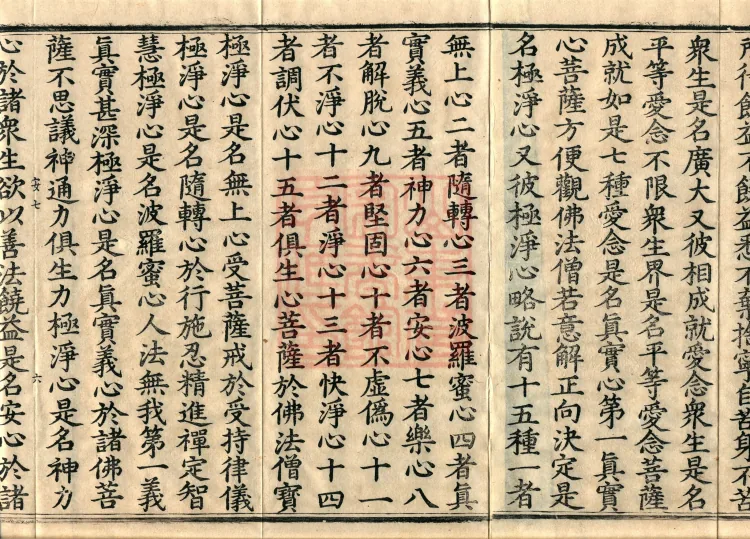 行饒益不饒益悉不棄捨寧自苦身不苦
衆生是名廣大又彼相成就愛念衆生是名
平等愛念不限衆生界是名平等愛念菩薩
成就如是七種愛念是名眞實心第一眞實
心菩薩方便觀佛法僧若意解正向決定是
名極淨心又彼極淨心略說有十五種一者
無上心二者隨轉心三者波羅蜜心四者眞
實義心五者神力心六者安心七者樂心八
者解脫心九者堅固心十者不虛僞心十一
者不淨心十二者淨心十三者快淨心十四
者調伏心十五者俱生心菩薩於佛法僧寶
極淨心是名無上心受菩薩戒於受持律儀
極淨心是名隨轉心於行施忍精進禪定智
慧極淨心是名波羅蜜心人法無我第一義
眞實甚深極淨心是名眞實義心於諸佛菩
薩不思議神通力俱生力極淨心是名神力
安七 六
心於諸衆生欲以善法饒益是名安心於諸